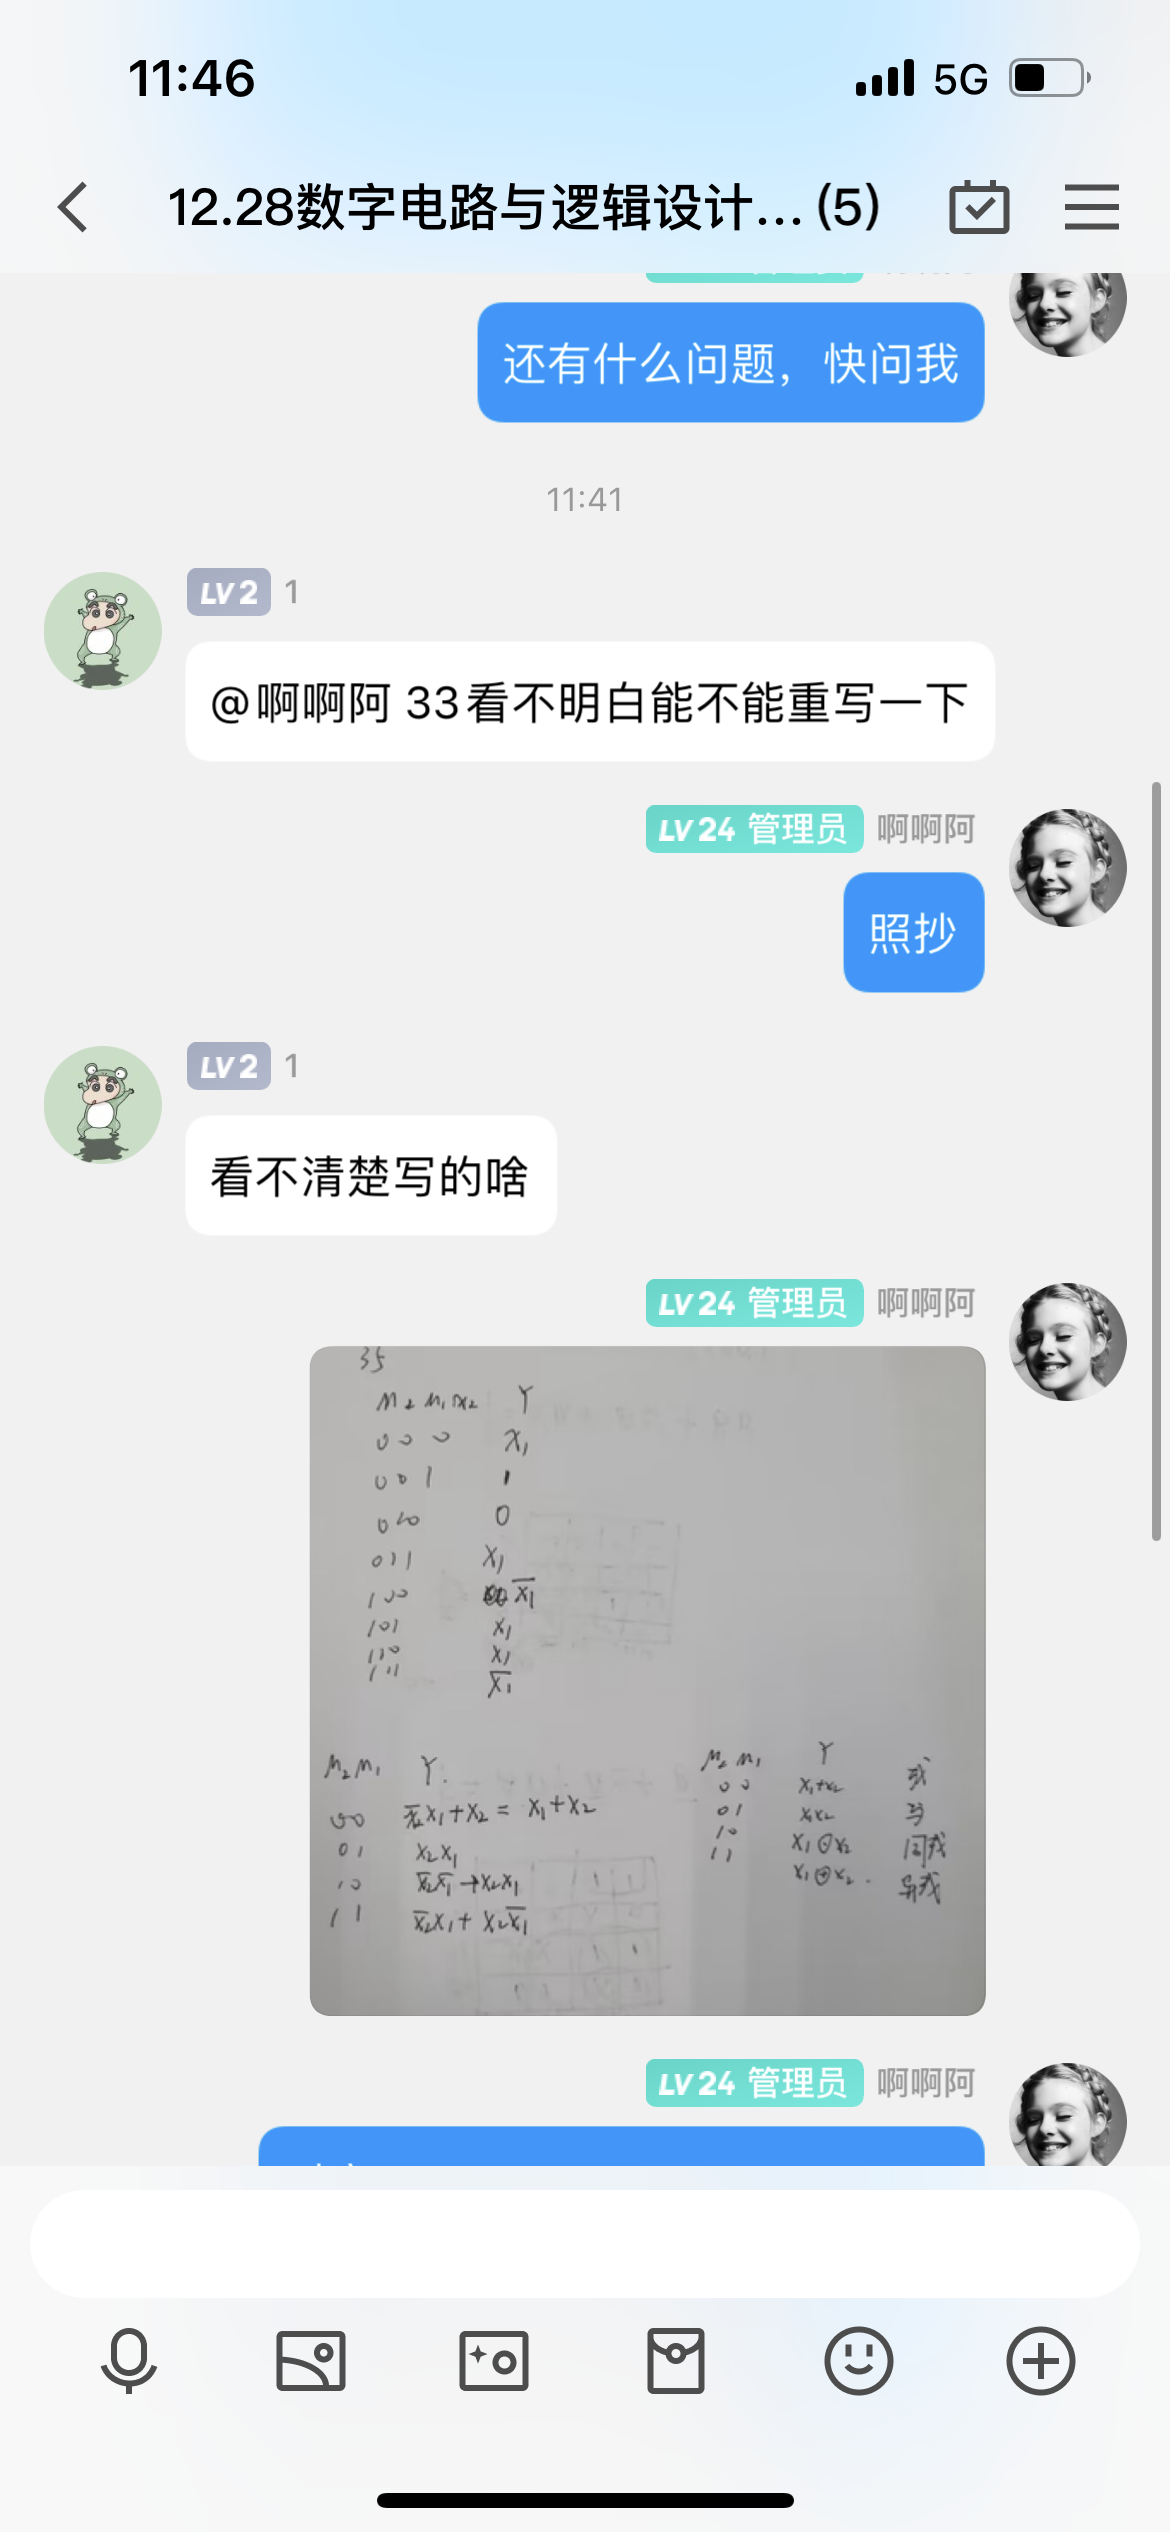 11:46
5G
12.28数字电路与逻辑设计... (5)
还有什么问题，快问我
11:41
LV 2 1
@啊啊阿 33看不明白能不能重写一下
LV 24 管理员 啊啊阿
照抄
LV 2 1
看不清楚写的啥
LV 24 管理员 啊啊阿
35
M₂ M₁ x₂ Y
0 0 0 x₁
0 0 1 1
0 1 0 0
0 1 1 x₁
1 0 0 x̅₁
1 0 1 x₁
1 1 0 x₁
1 1 1 x̅₁
M₂ M₁ Y
0 0 x̅₂x₁+x₂ = x₁+x₂
0 1 x₂x₁
1 0 x̅₂x̅₁+x₂x₁
1 1 x̅₂x₁+x₂x̅₁
M₂ M₁ Y
0 0 x₁+x₂ 或
0 1 x₁x₂ 与
1 0 x₁⊙x₂ 同或
1 1 x₁⊕x₂. 异或
LV 24 管理员 啊啊阿